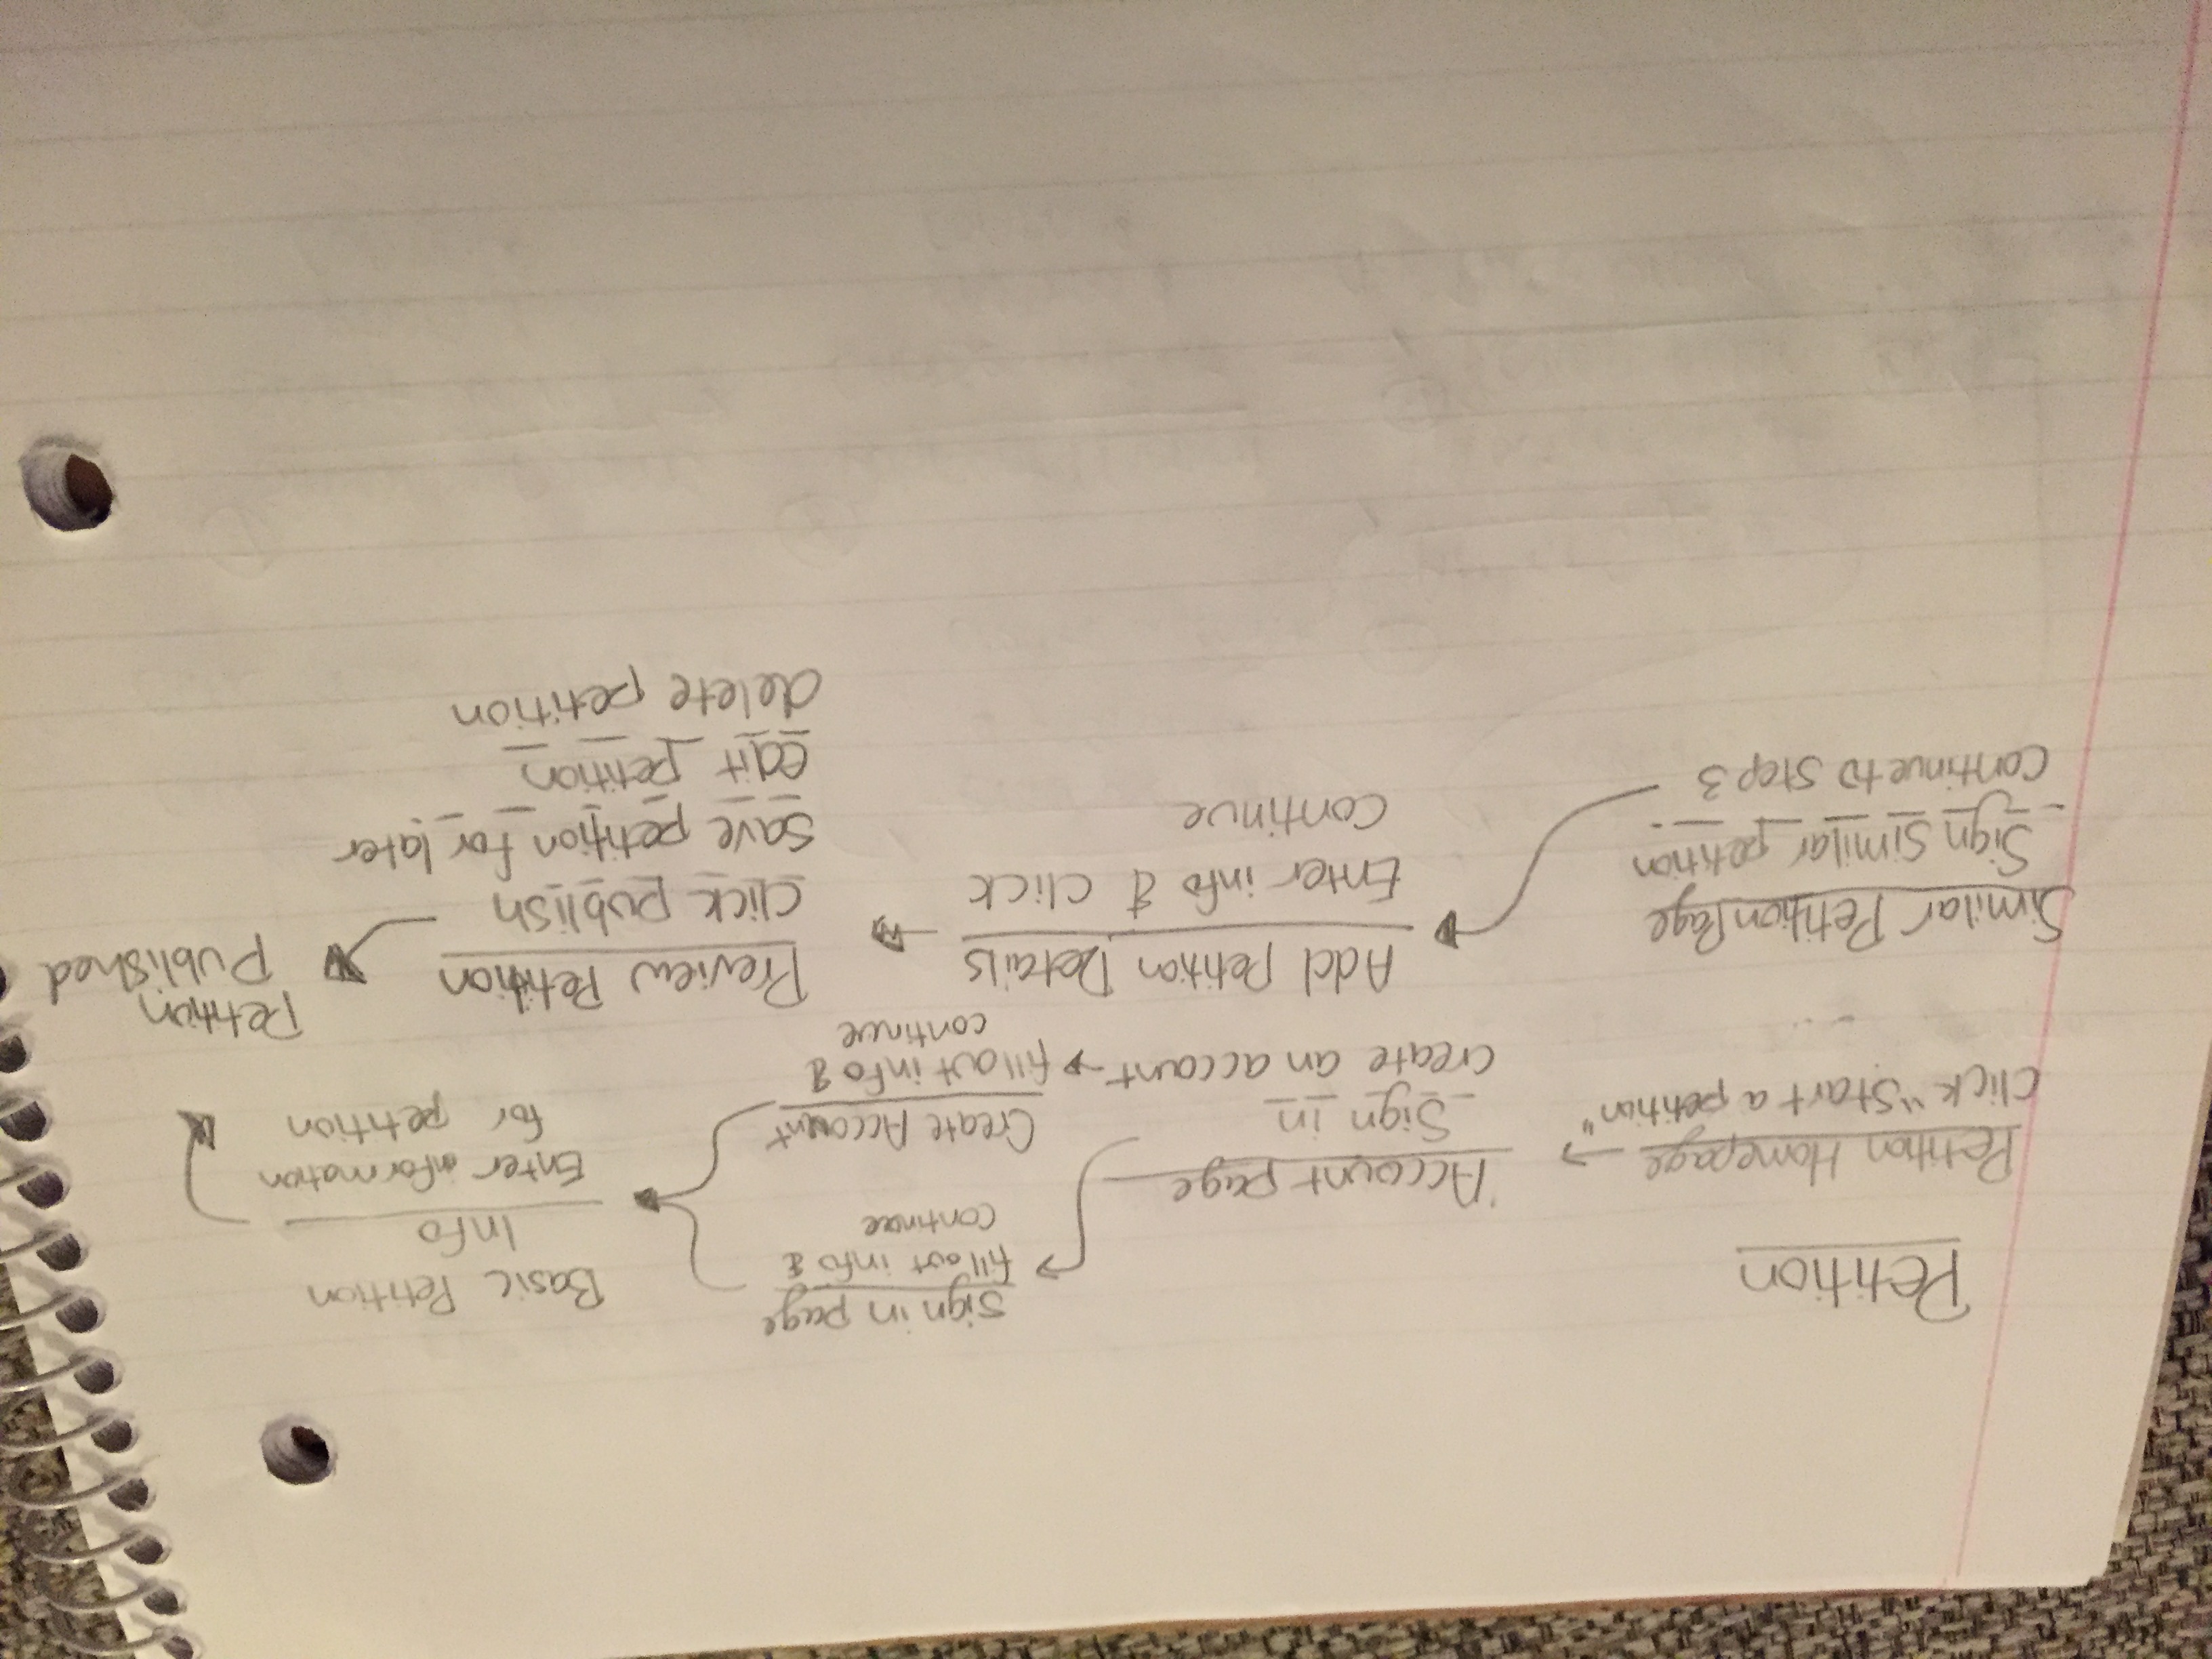 Petition
Petition Homepage
Click "Start a petition"
Account page
Sign in
create an account
sign in page
fill out info &
continue
Create Account
fill out info &
continue
Basic Petition
Info
Enter information
for petition
Similar Petition Page
Sign similar petition
continue to step 3
Add Petition Details
Enter info & click
continue
Preview Petition
click publish
save petition for later
edit petition
delete petition
Petition
Published